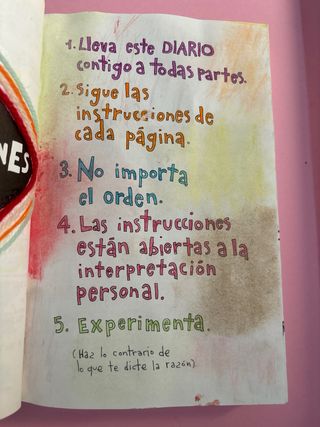 NES
1. Lleva este DIARIO
contigo a todas partes.
2. Sigue las
instrucciones de
cada página.
3. No importa
el orden.
4. Las instrucciones
están abiertas a la
interpretación
personal.
5. Experimenta.
(Haz lo contrario de
lo que te dicte la razón).